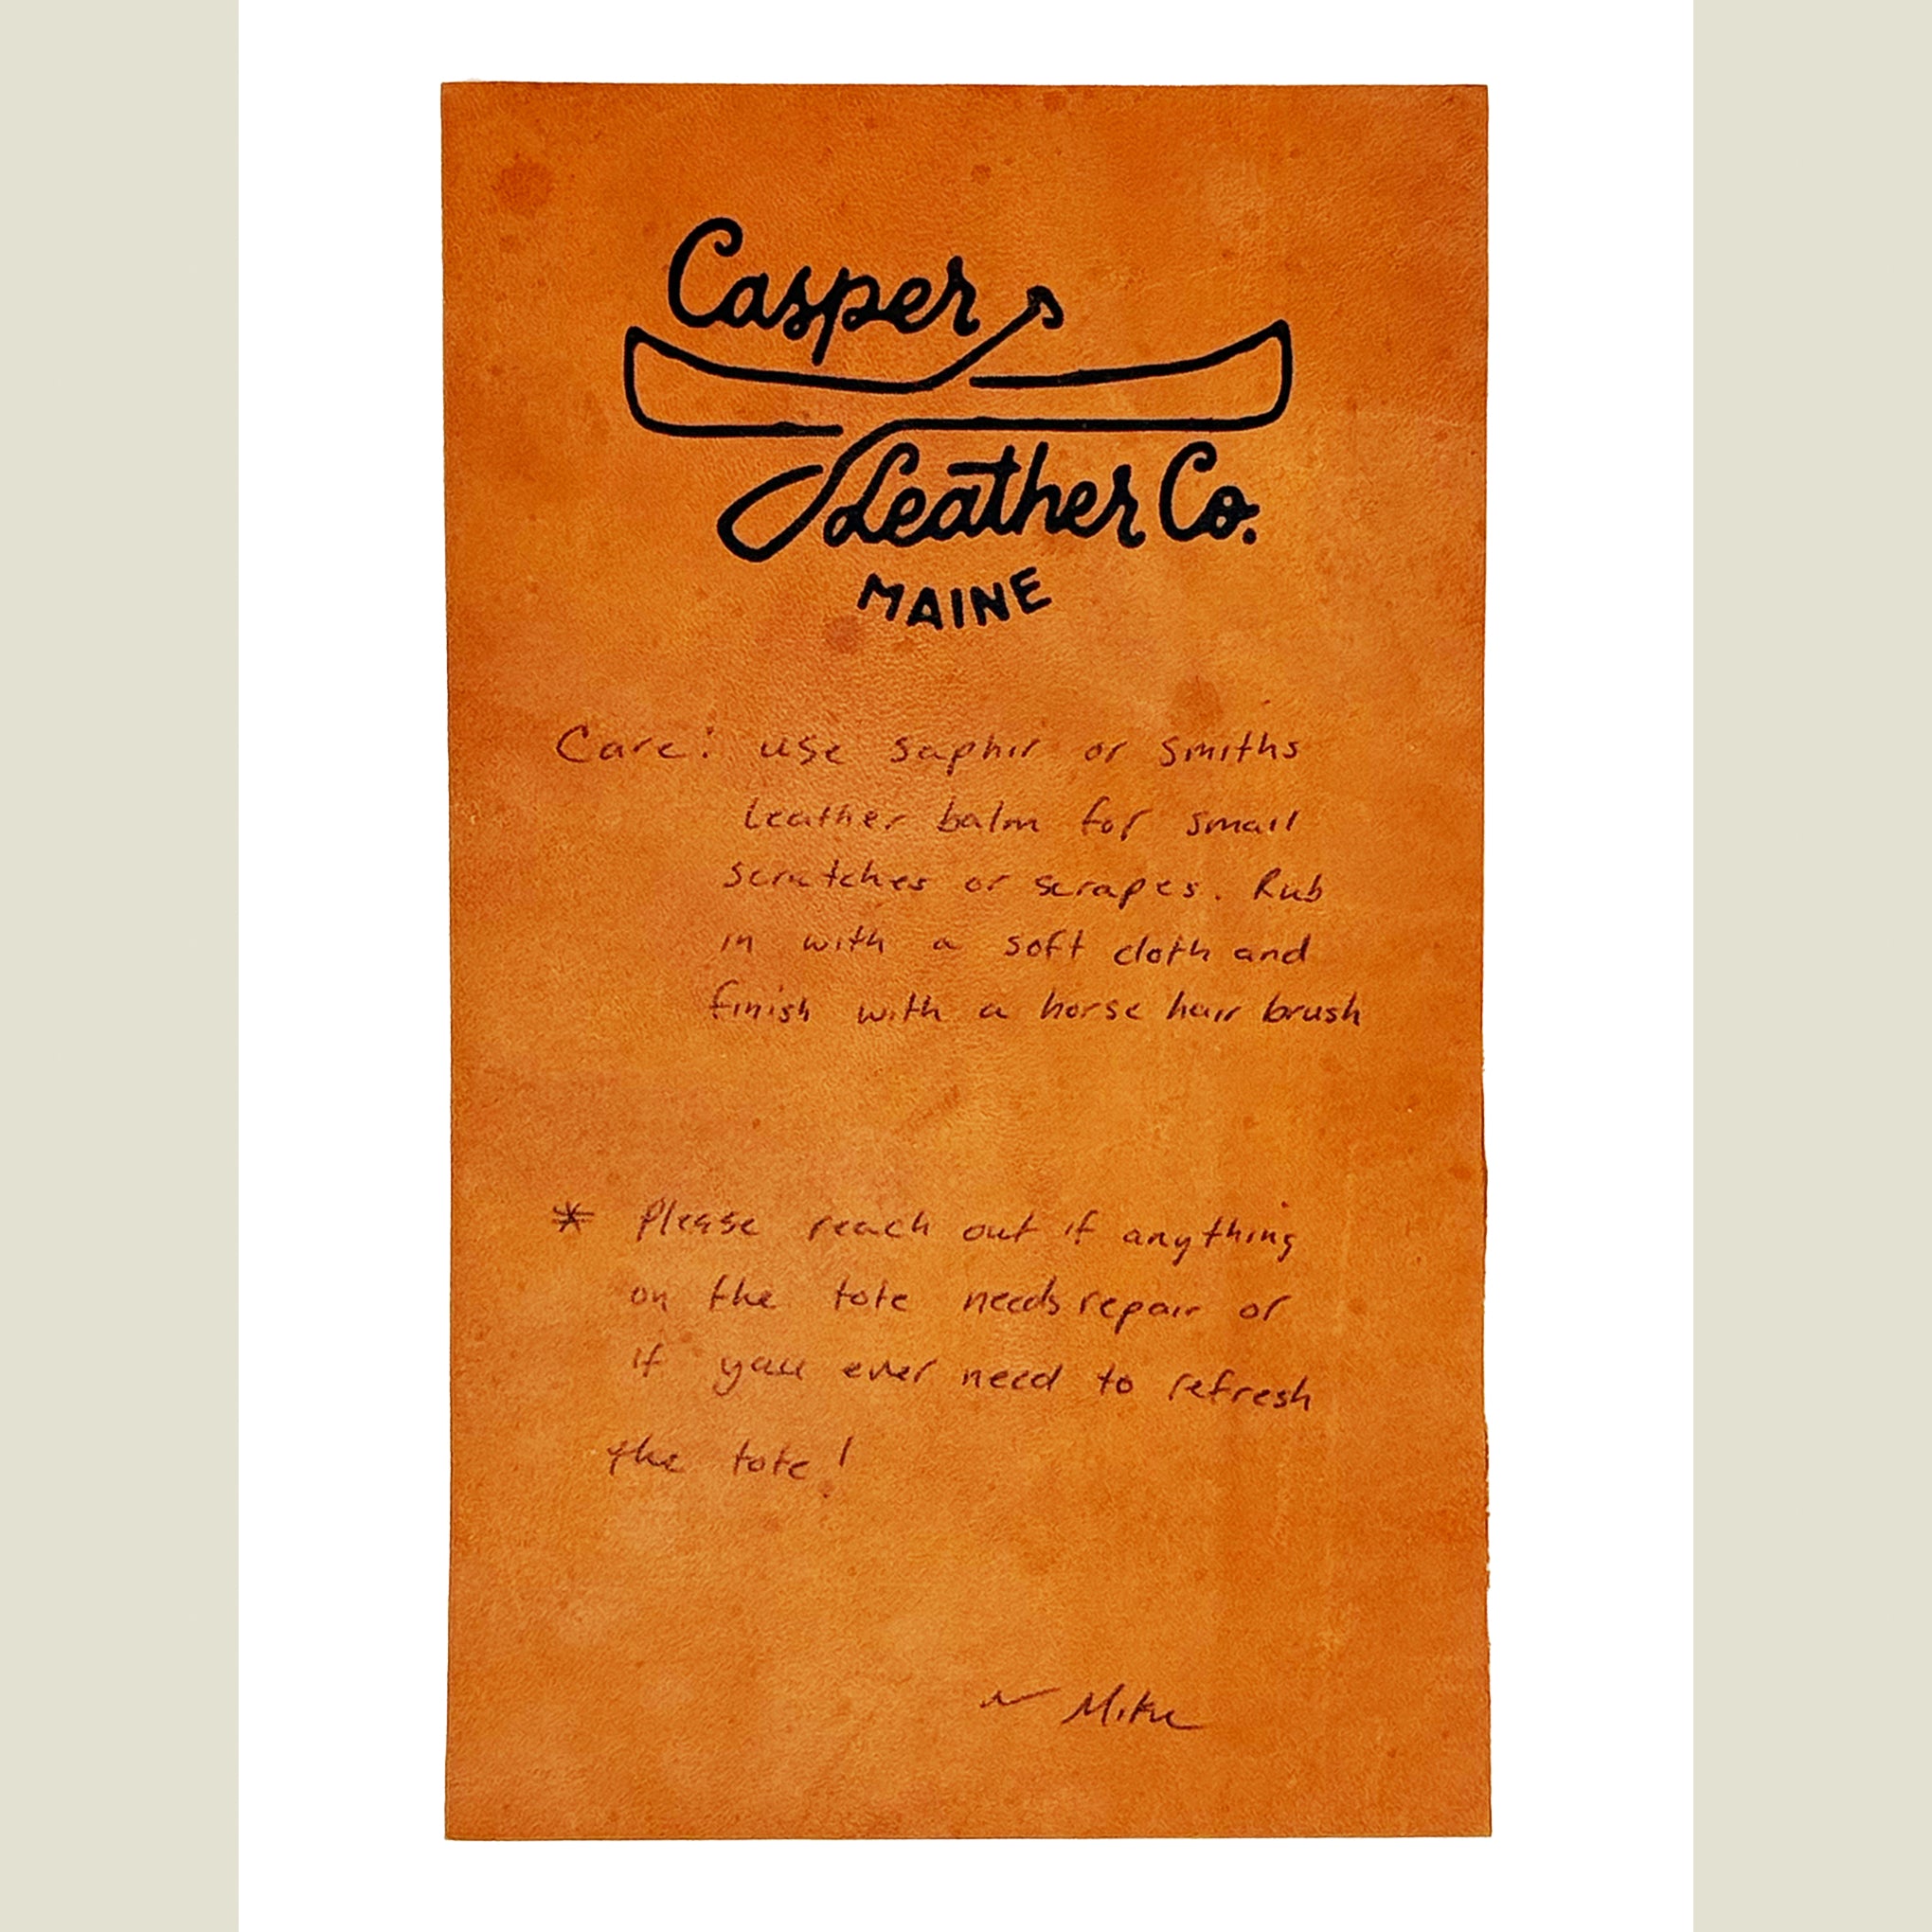 Casper
Leather Co.
MAINE
Care: use saphir or smiths
leather balm for small
scratches or scrapes. Rub
in with a soft cloth and
finish with a horse hair brush
* Please reach out if anything
on the tote needs repair or
if you ever need to refresh
the tote!
~ Mike